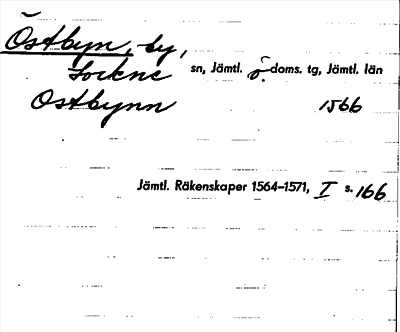 Östbyn, by,
Lockne sn, Jämtl. ö. doms. tg, Jämtl. län
Ostbynn 1566
Jämtl. Räkenskaper 1564-1571, I s. 166